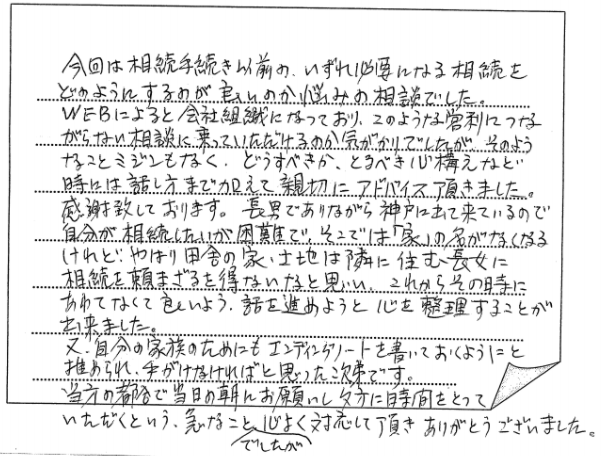 今回は相続手続き以前の、いずれ必要になる相続を
どのようにするのが良いのか悩みの相談でした。
WEBによると会社組織になっており、このような営利につな
がらない相談に乗っていただけるのか気がかりでしたが、そのよう
なことミジンもなく、どうすべきか、とるべき心構えなど
時には話し方まで加えて親切にアドバイス頂きました。
感謝致しております。長男でありながら神戸に出て来ているので
自分が相続したいが困難で、そこでは「家」の名がなくなる
けれど、やはり田舎の家・土地は隣に住む長女に
相続を頼まざるを得ないなと思い、これからその時に
あわてなくて良いよう、話を進めようと心を整理することが
出来ました。
又、自分の家族のためにもエンディングノートを書いておくようにと
推められ、手がけなければと思った次第です。
当方の都合で当日の朝にお願いし夕方に時間をとって
いただくという、急なこと心よく対応して頂きありがとうございました。
でしたが